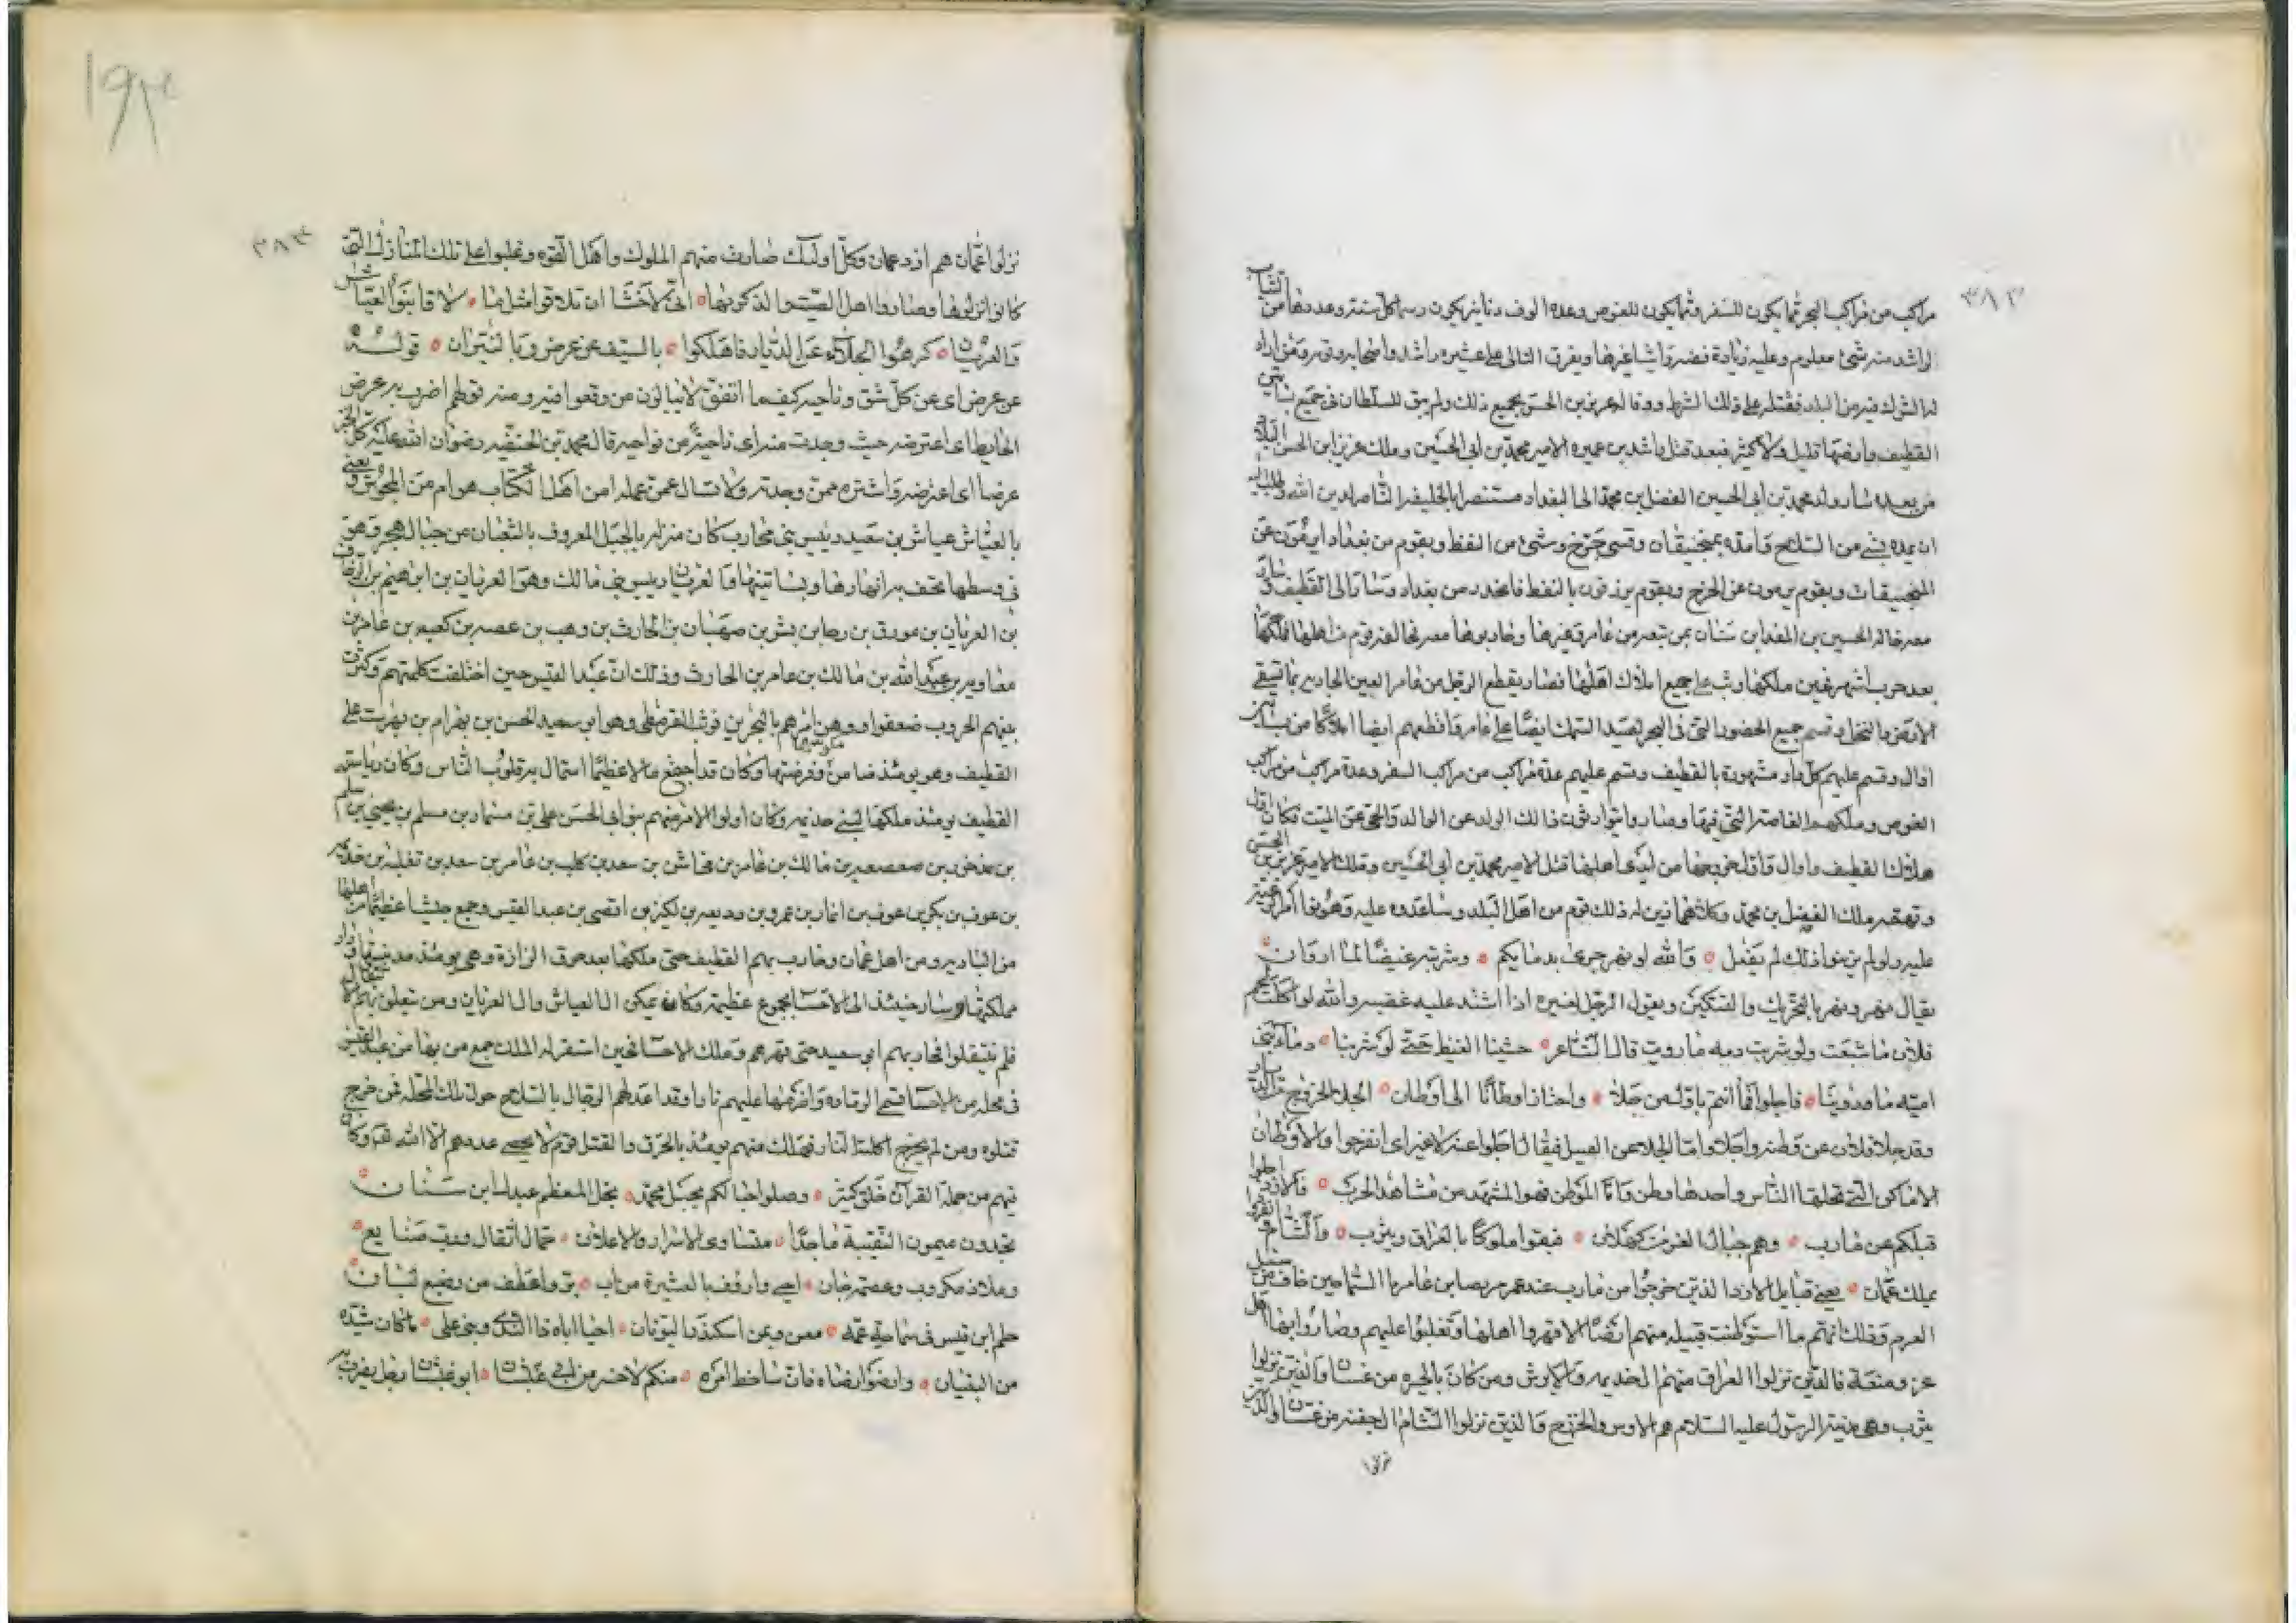 ٣٨٢
مراكب من مراكب البحر ثما يكون للسفر وثما يكون للغوص وعده الوف دنانير يكون رسما كل سنة وعددها من
لراشد منه شئ معلوم وعليه زيادة فضه واشيا غيرها ويفرق التالى على عشيره راشد واصحابه وقومه ومن اراد
له الشرك فيه من البلد فقتله على ذلك الشرط ووفا له عزيز بن الحسن بجميع ذلك ولم يبق للسلطان فى جميع بساتين
القطيف وارضها قليل ولا كثير فبعد قتل راشد بن عميره الامير محمد بن ابى الحسين وملك عزيز ابن الحسن البلاد
من بعده سار ولد محمد بن ابى الحسين الفضل بن محمد الى البغداد مستنصرا بالخليفه الناصر لدين الله وطلب اليه
ان يمده بشئ من السلاح فامده بمنجنيقات وقسى جرخ وشئ من النفط وبقوم من بغداد يرمون عن
المنجنيقات وبقوم يرمون عن الجرخ وبقوم يزرقون بالنفط فانحدر من بغداد وسار الى القطيف وسار
معه خاله الحسين بن المقداد بن سنان بمن تبعه من عامر وغيرها وحاربوها معه نحالفه قوم من اهلها فملكها
بعد حرب اشهر فحين ملكها وثب على جميع املاك اهلها فصار يقطع الرجل من عامر العين الجاريه بما تسقى
الارض بالنخل وقسم جميع الحضور التى فى البحر لصيد السمك ايضا على عامر واقطعهم ايضا املاكا من بساتين
اوال وقسم عليهم كل دار مشهورة بالقطيف وقسم عليهم عدة مراكب من مراكب السفر وعدة مراكب من مراكب
الغوص وملكهم الغاصة التى فيها وصاروا يتوارثون ذلك الولد عن الوالد والحى عن الميت فكان اول
هلاك القطيف واوال واول خروجها من ايدى اهلها قتل الامير محمد بن ابى الحسين وملك الامير عزيز بن الحسن
وتعقبه ملك الفضل بن محمد وكلاهما زين له ذلك قوم من اهل البلد وساعدوه عليه وهونوا امر رعيته
عليه ولو لم يزينوا ذلك لم يفعل ٥ والله لو نهر جرى بدمايكم ٥ وشربته غيضا لما اروان ٥
يقال نهر ونهر بالتحريك والتسكين ويقول الرجل لغيره اذا اشتد عليه غضبه والله لو اكلت لحم
فلان ما شبعت ولو شربت دمه ما رويت قال الشاعر ٥ حشينا الغيظ حتى لو شربنا ٥ دماء بنى
اميه ما روينا ٥ فاجلوا فما انتم باول من جلا ٥ واختار اوطانا الى اوطان ٥ الجلا الخروج من الديار
وقد جلا فلان عن وطنه واجلا واما الجلا عن القتيل فيقال اجلوا عنه لا غير اى انفرجوا والاوطان
الاماكن التى يحلها الناس واحدها وطن واما الموطن فهو المشهد من مشاهد الحرب ٥ فالازد اجلوا
قبلكم عن مارب ٥ وهم جبال العز من كهلان ٥ فبقوا ملوكا بالعراق ويثرب ٥ والشام والغرا
بملك عمان ٥ يعنى قبايل الازد الذين خرجوا من مارب عند عمرو بن عامر ماء السما حين خاف من سيل
العرم وذلك انهم ما استوطنت قبيله منهم ارضا الا قهروا اهلها وتغلبوا عليهم وصاروا بها اهل
عز ومنعة فالذين نزلوا العراق منهم جذيمه والابرش ومن كان بالحيره من غسان والذين نزلوا
يثرب وهى مدينة الرسول عليه السلام هم الاوس والخزرج والذين نزلوا الشام ال جفنه من غسان والذين
نزلوا
١٩٣
٣٨٣
نزلوا عمان هم ازد عمان وكل اوليك صارت منهم الملوك واهل القوه وغلبوا على تلك المنازل التى
كانوا نزلوها وصاروا اهل الصيت والذكر بها ٥ انى لاخشا ان تلاقوا مثل ما ٥ لاقا بنوا العياش
والعريان ٥ كرهوا الجلاء عن الديار فاهلكوا ٥ بالسيف عن عرض وبالنيران ٥ قوله
عن عرض اى عن كل شق وناحيه كيف ما اتفق لا يبالون من وقعوا فيه ومنه قولهم اضرب به عرض
الحايط اى اعترضه حيث وجدت منه اى ناحية من نواحيه قال محمد بن الحنفيه رضوان الله عليه كل الجبن
عرضا اى اعترضه واشتره ممن وجدته ولا تسال عمن عمله امن اهل الكتاب هو ام من المجوس ويعنى
بالعياش عياش بن سعيد رييس بنى محارب كان منزله بالجبل المعروف بالشبعان من جبال هجر وهو
فى وسطها تحف به انهارها وبساتينها والعريان رييس بنى مالك وهو العريان بن ابراهيم بن الزحاف
بن العريان بن مورق بن رجا بن بشر بن صهبان بن الحارث بن وهب بن عصر بن كعب بن عامر بن
معاويه بن عبد الله بن مالك بن عامر بن الحارث وذلك ان عبد القيس حين اختلفت كلمتهم وكثرت
بينهم الحروب ضعفوا ووهن امرهم بالبحرين فوثب القرمطى وهو ابو سعيد الحسن بن بهرام بن بهرست على
القطيف وهو يومئذ ضامن مكوسها وفرضتها وكان قد اجمع مالا عظيما استمال به قلوب الناس وكان رياسة
القطيف يومئذ ملكها لبنى جذيمه وكان اولوا الامر منهم بنو ابى الحسن على بن مسمار بن مسلم بن يحيى بن اسلم
بن مذخور بن صعصعه بن مالك بن عامر بن مخاشن بن سعد بن كليب بن عامر بن سعد بن ثعلبه بن جذيمه
بن عوف بن بكر بن عوف بن انمار بن عمرو بن وديعه بن لكيز بن افصى بن عبد القيس وجمع جيشا عظيما من اهلها
من الباديه ومن اهل عمان وحارب بهم القطيف حتى ملكها بعد حرق الزارة وهى يومئذ مدينتها ودار
مملكتها وسار حينئذ الى الاحسا بجموع عظيمه وكان يمكن ال العياش وال العريان ومن تعلق بهم الانتقال
فلم ينتقلوا فحاربهم ابى سعيد حتى قهرهم وملك الاحسا فحين استقر له الملك جمع من بها من عبد القيس
فى محله من الاحسا تسمى الرماده واضرمها عليهم نارا وقد اعد لهم الرجال بالسلاح حول تلك المحله فمن خرج
قتلوه ومن لم يخرج اكلته النار فهلك منهم يومئذ بالحرق والقتل قوم لا يحصى عددهم الا الله تعا وكان
فيهم من حملة القران خلق كثير ٥ وصلوا حبالكم بحبل محمد ٥ نجل المعظم عبدل ابن سنان ٥
تجدون ميمون النقيبة ماجدا ٥ متساوى الاسرار والاعلان ٥ حمال اثقال ورب صنايع ٥
وملاذ مكروب وعصمة جان ٥ احمى وارؤف بالعشيرة من اب ٥ بر واعطف من رضيع لبان ٥
حلم ابن قيس فى سماحة عمه ٥ معن ويمن اسكندر اليونان ٥ احيا اباه ذا الندى وبنى على ٥ ما كان شيده
من البنيان ٥ وارضوا رضاه فان ساخط امره ٥ منكم لاخسر من ابى غبشان ٥ ابو غبشان رجل يضرب به